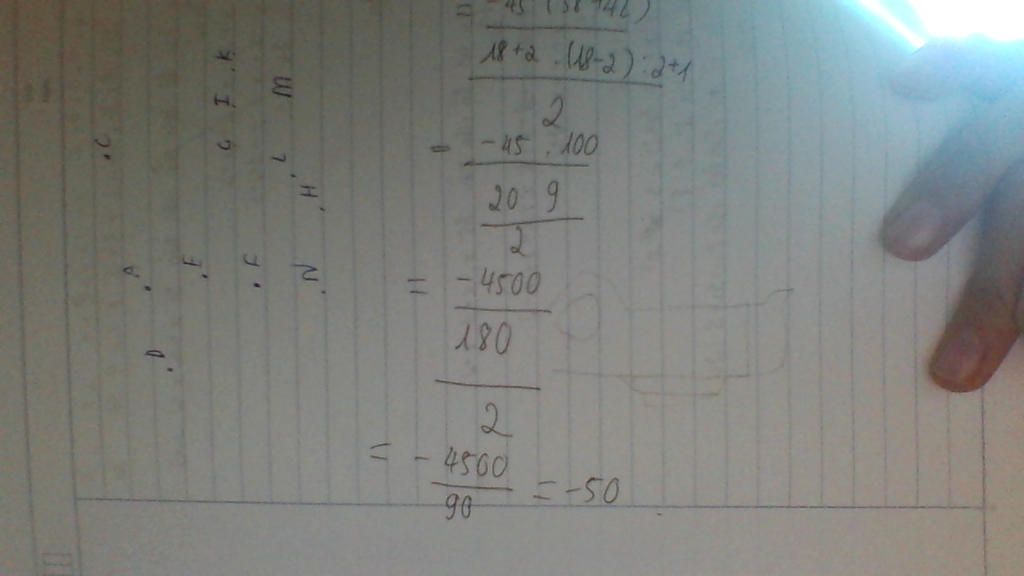 = -45 (58+42)
18+2 . (18-2) : 2+1
2
= -45 . 100
20 9
2
= -4500
180
2
= - 4500
90 = -50
.C
G I . K
. L M
. H
. A
. E
. F
. N
. D